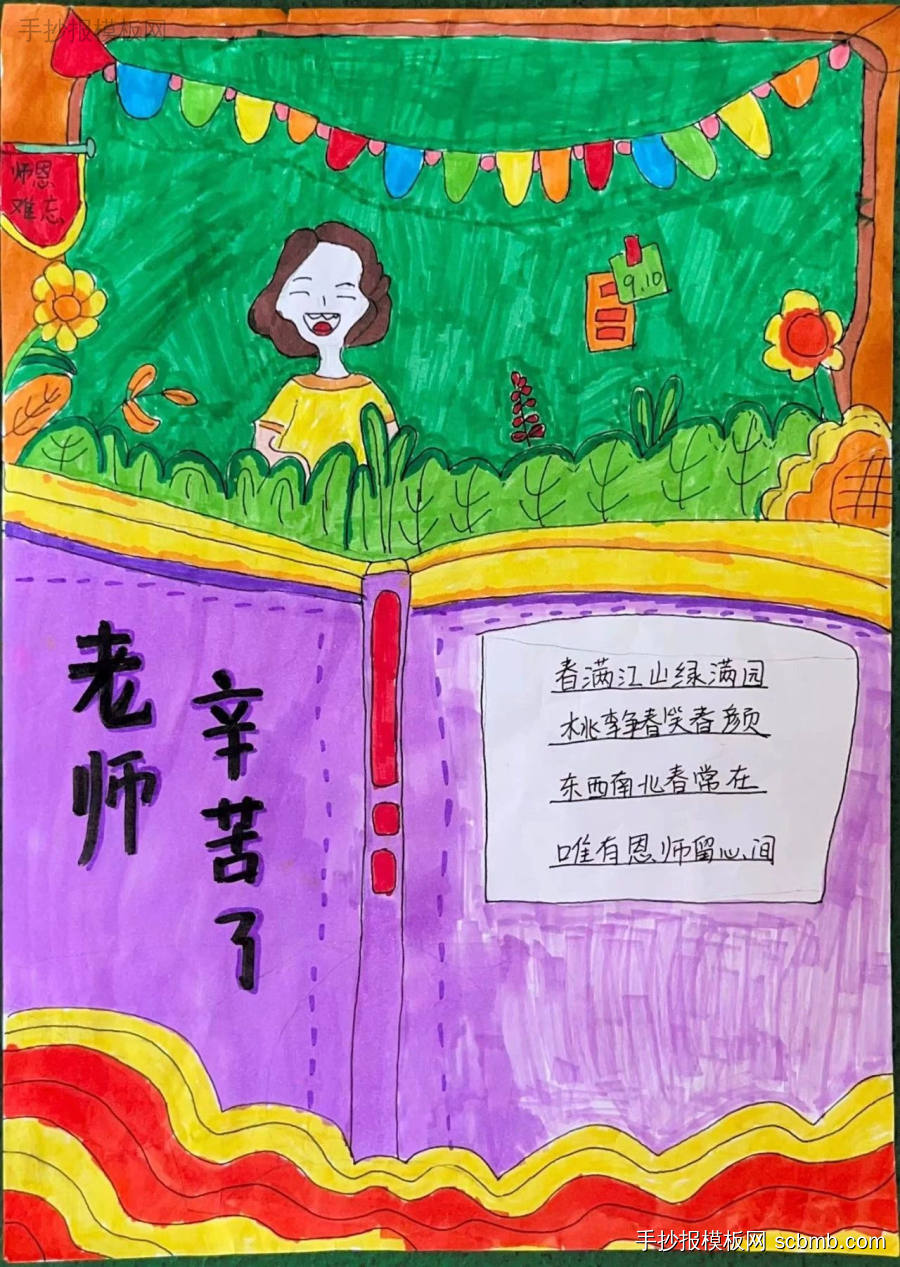 手抄报模板网
师恩
难忘
9.10
老师
辛苦了
春满江山绿满园
桃李争春笑春颜
东西南北春常在
唯有恩师留心间
手抄报模板网 scbmb.com